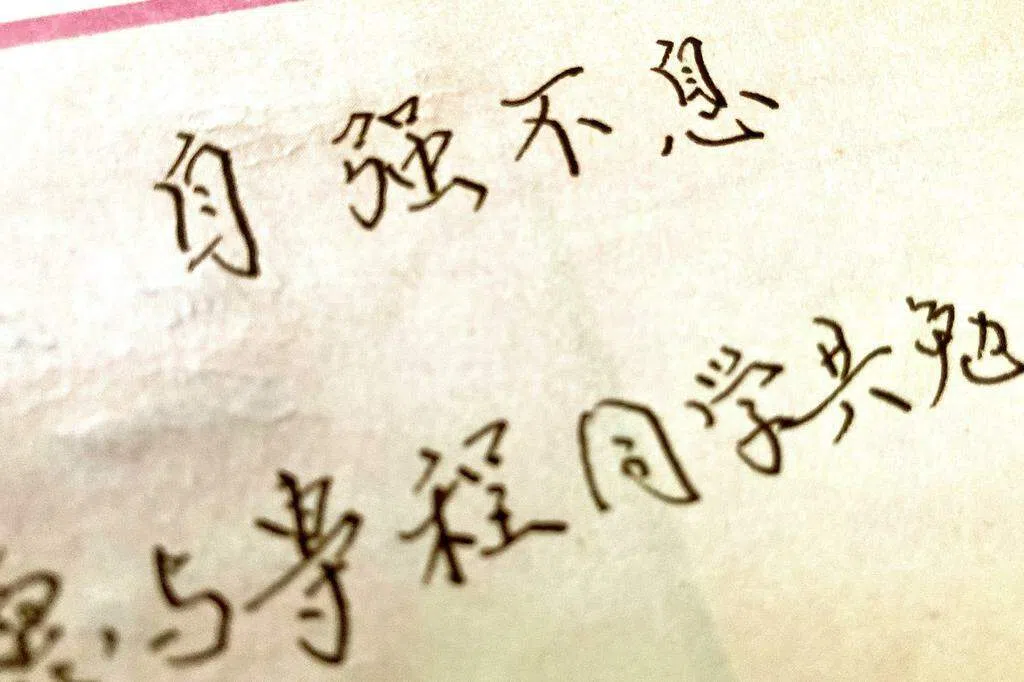 自强不息
与程同学共勉